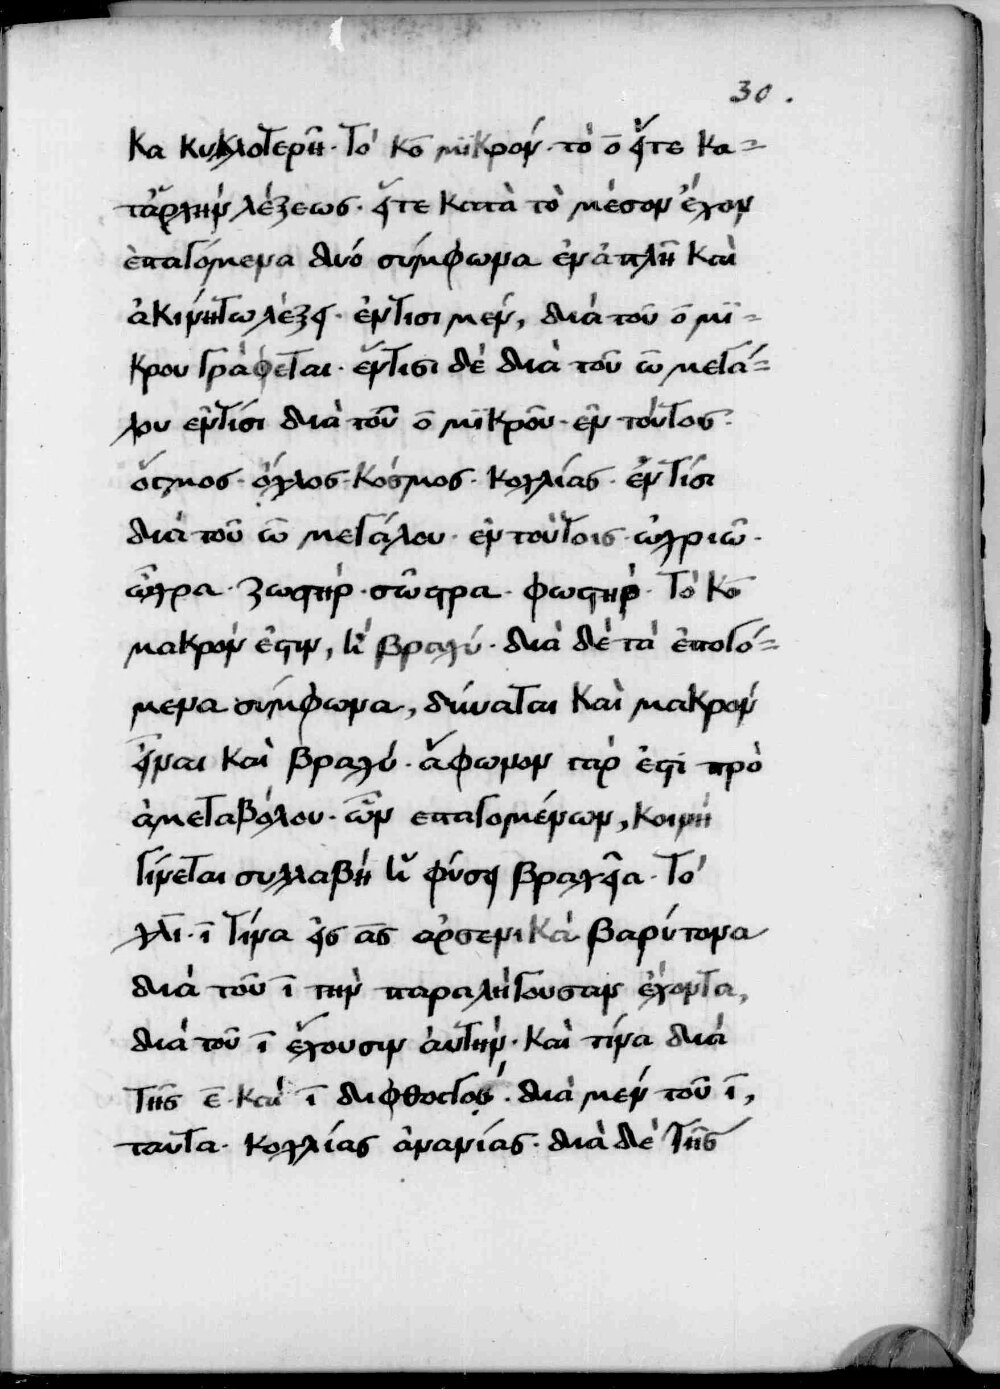 30.
κα κυκλοτερῆ· Τὸ κο̄ μϊκρόν· τὸ ο̄ εἴτε κα=
τἀρχὴν λέξεως· εἴτε κατὰ τὸ μέσον ἔχον
ἐπαγόμενα δυό σύμφωνα ἐν ἁπλῆ καὶ
ἀκινήτω λέξει· ἐν τισι μεν, διά τοῦ ο̄ μϊ=
κρου γράφεται· ἔν τισι δὲ διὰ τοῦ ω̄ μεγά=
λου ἐν τίσι διὰ τοῦ ο̄ μϊκροῦ· ἐν τούτοις·
ὄσχμος· ὄχλος· κόσμος· κοχλίας· ἐν τίσι
διὰ τοῦ ω̄ μεγάλου· ἐν τούτοις· ὠχριῶ·
ὦχρα· ζωστήρ· σῶστρα· φωστήρ· Τὸ κο̄
μακρόν ἐστιν, ἢ βραχύ· διὰ δὲ τὰ ἐπαγό=
μενα σύμφωνα, δύναται καὶ μακρόν
εἶναι καὶ βραχύ· ἄφωνον γὰρ ἐστὶ πρὸ
ἀμεταβόλου· ὧν επαγομένων, κοινὴ
γίνεται συλλαβὴ ἢ φύσει βραχεῖα· Τὸ
χλι· ῑ τίνα εἰς ᾱς αρσενικὰ βαρύτονα
διὰ τοῦ ῑ τὴν παραλήγουσαν ἔχοντα,
διὰ τοῦ ῑ ἔχουσιν ἀυτήν· καὶ τίνα διὰ
τῆς ε̄ καὶ ῑ διφθόγγου· διὰ μεν τοῦ ῑ,
ταυτα· κοχλίας ἀνανίας· διὰ δὲ τῆς